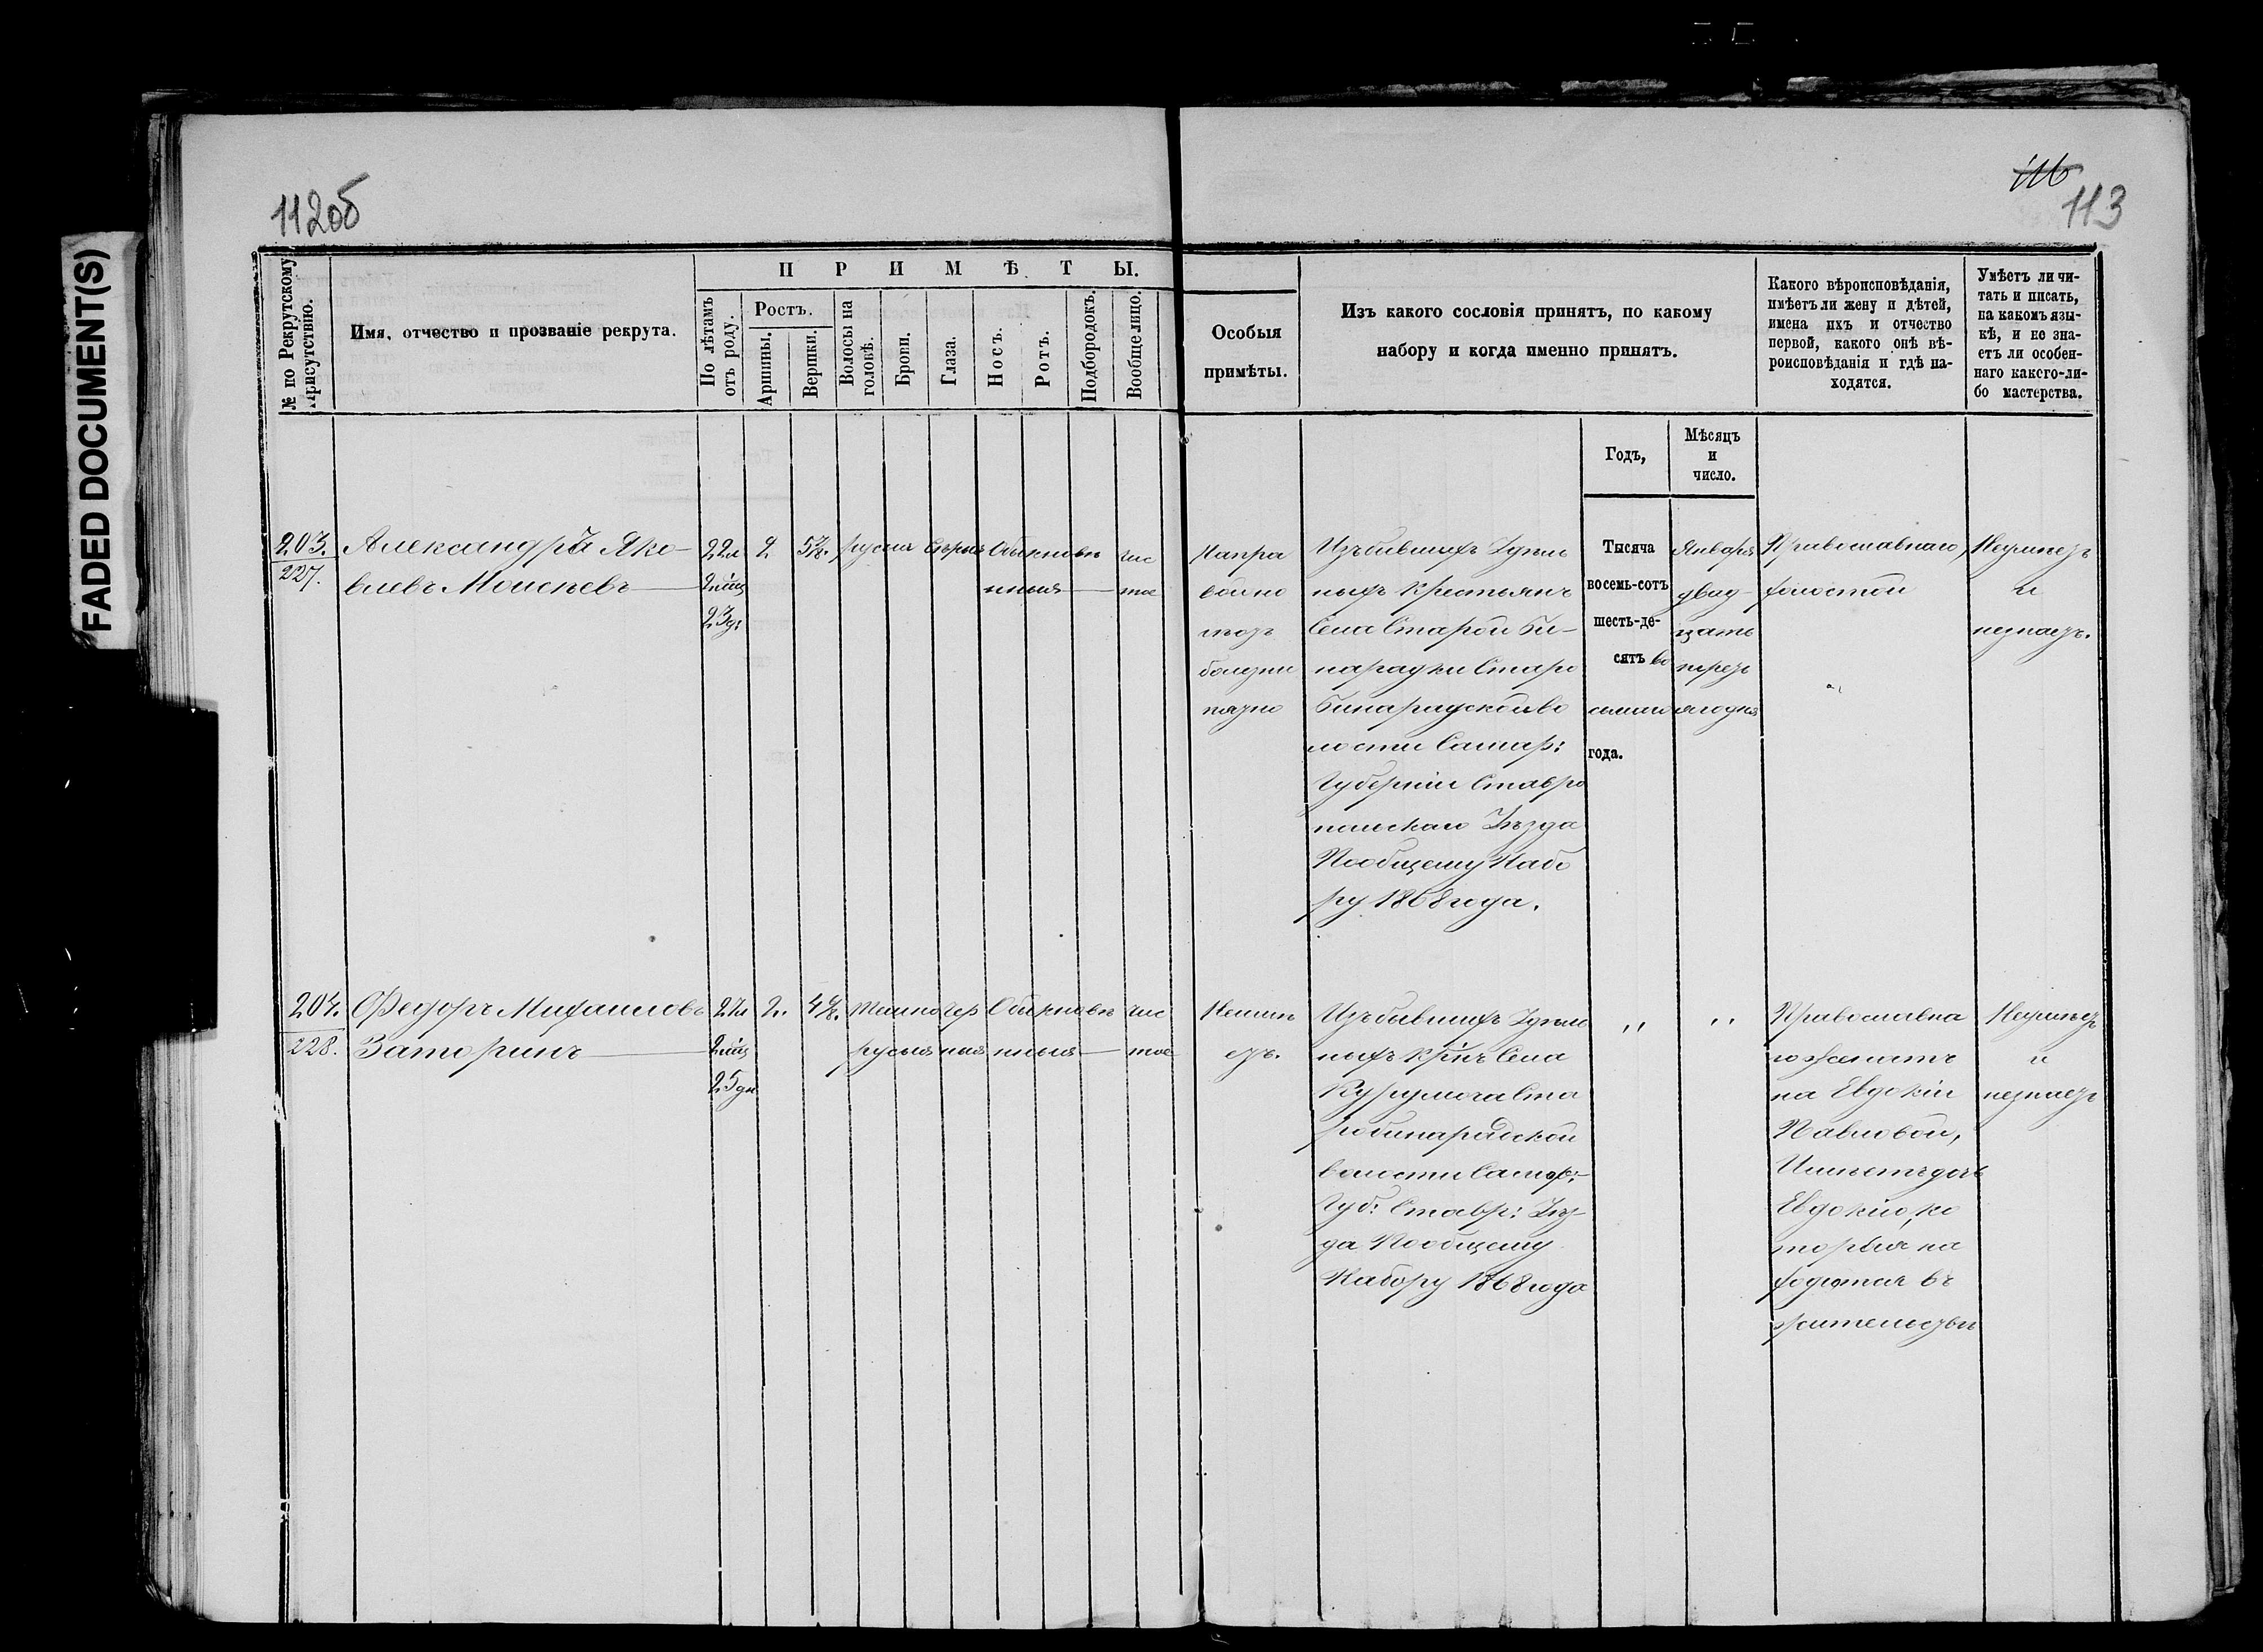 FADED DOCUMENT(S)
112об
113
П Р И М Ѣ Т Ы.
№ по Рекрутскому
Присутствію.
Имя, отчество и прозваніе рекрута.
По лѣтамъ
отъ роду.
Ростъ.
Аршины.
Вершки.
Волосы на
головѣ.
Брови.
Глаза.
Носъ.
Ротъ.
Подбородокъ.
Вообще лицо.
Особыя
примѣты.
Изъ какого сословія принятъ, по какому
набору и когда именно принятъ.
Какого вѣроисповѣданія,
имѣетъ ли жену и дѣтей,
имена ихъ и отчество
первой, какого онѣ вѣ-
роисповѣданія и гдѣ на-
ходятся.
Умѣетъ ли чи-
тать и писать,
на какомъ язы-
кѣ, и не зна-
етъ ли особен-
наго какого-ли-
бо мастерства.
Годъ,
Мѣсяцъ
и
число.
203.
227.
Александръ Яко-
влевъ Моисѣевъ
22л
2мѣц
23дн
2
5 7/8.
русыя
сѣрыя
Обыкновѣ
нныя
чис
тое
На пра
вой но
гѣ отъ
болезни
пятно
Изъ бывшихъ Удѣль
ныхъ Крестьянъ
Села Старой Би-
нарадки Старо
Бинарадской во
лости Самар:
Губерніи Ставро
польскаго Уѣзда
По общему Набо
ру 1868 года.
Тысяча
восемь-сотъ
шесть-де-
сятъ во
сьмаго
года.
Января
двад-
цать
третьяго дня
Православнаго,
холостой
Неумѣетъ
и
незнаетъ.
204.
228.
Федоръ Михаиловъ
Заторинъ
22л
2мѣц
25дн
2.
4 4/8.
Темно
русыя
чер
ныя
Обыкновѣ
нныя
чис
тое
Неимѣ
етъ.
Изъ бывшихъ Удѣль
ныхъ Кр҃нъ Села
Курумоча Ста
робинарадской
волости Самар:
Губ: Ставр: Уѣз-
да По общему
Набору 1868 года
,,
,,
Православна
го женатъ
на Евдокіи
Павловой,
Имѣетъ дочь
Евдокію, ко
торыя на
ходятся въ
жительствѣ
Неумѣетъ
и
незнаетъ